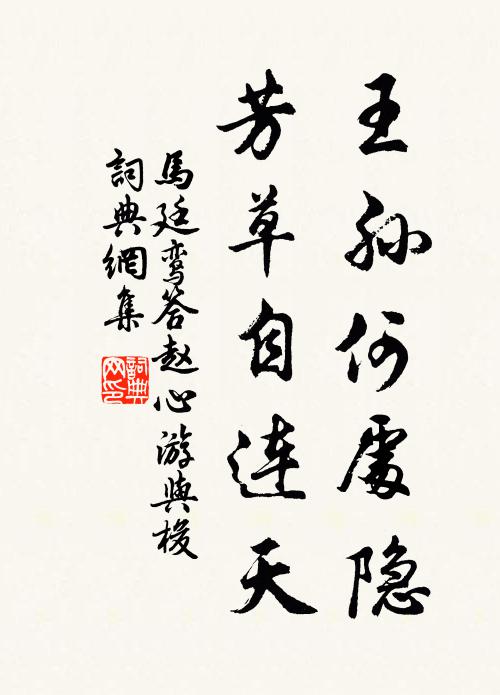 王孙何處隐
芳草自連天
馬廷鸾答赵心游與梭
詞典網集
詞典
网印